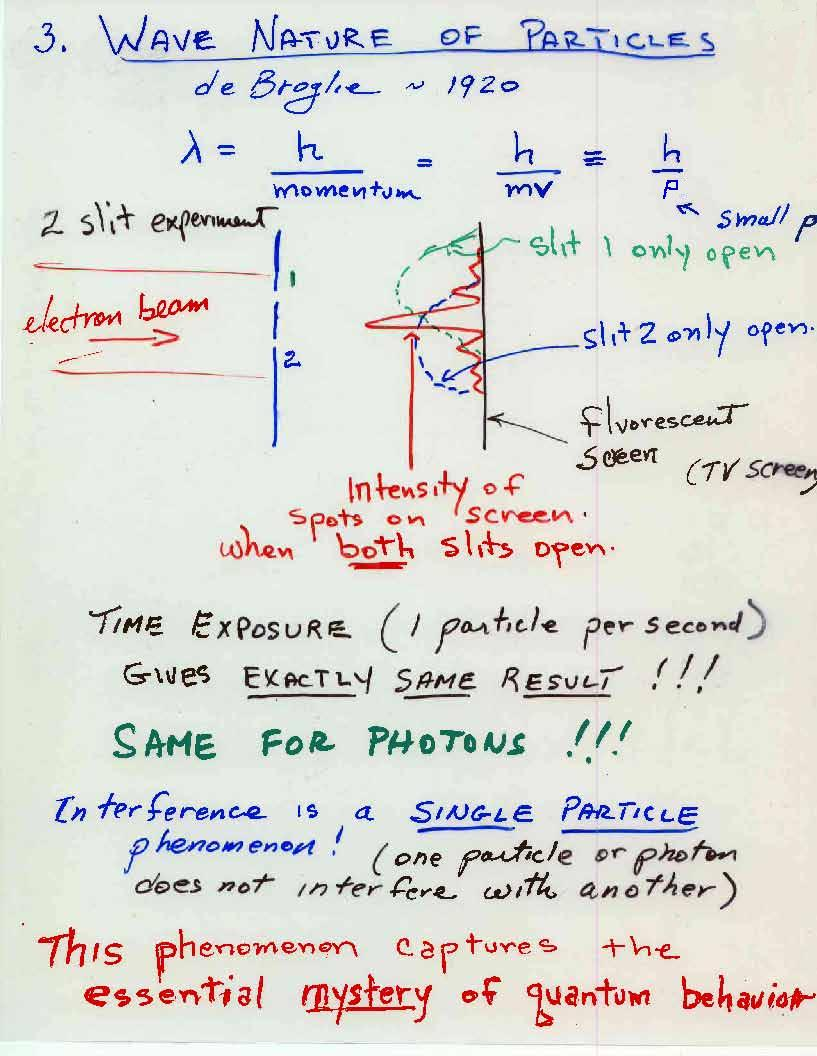 3. WAVE NATURE OF PARTICLES
de Broglie ~ 1920
λ = h/momentum = h/mv ≡ h/p
small p
2 slit experiment
1
slit 1 only open
electron beam
2
slit 2 only open.
fluorescent
sceen
(TV screen
Intensity of
spots on screen.
when both slits open.
TIME EXPOSURE (1 particle per second)
GIVES EXACTLY SAME RESULT !!!
SAME FOR PHOTONS !!!
Interference is a SINGLE PARTICLE
phenomenon! (one particle or photon
does not interfere with another)
This phenomenon captures the
essential mystery of quantum behavior